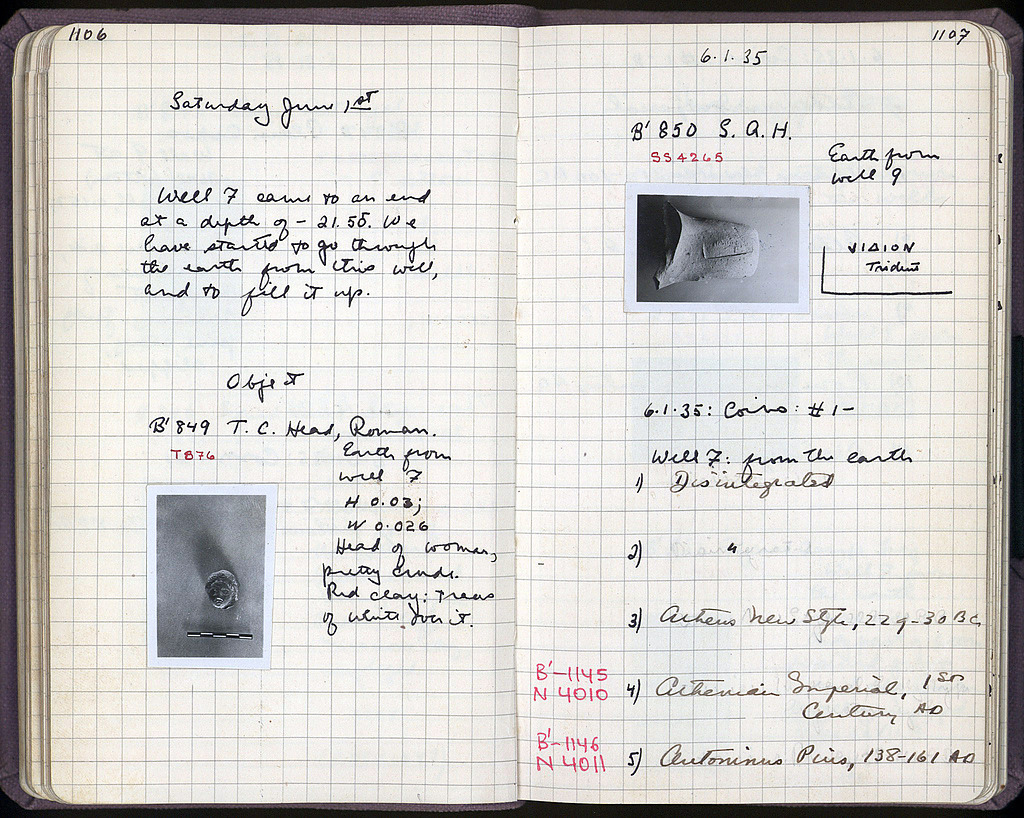 1106
Saturday June 1st
Well 7 came to an end
at a depth of - 21.55. We
have started to go through
the earth from this well,
and to fill it up.
Object
B' 849 T. C. Head, Roman.
T876
Earth from
well 7
H 0.03;
W 0.026
Head of woman,
pretty crude.
Red clay: traces
of white over it.
1107
6.1.35
B' 850 S. A. H.
SS 4265
Earth from
well 9
VIΔION
Trident
6.1.35: Coins: #1-
Well 7: from the earth
1) Disintegrated
2) "
3) Athens New Style, 229-30 BC
B'-1145
N 4010
4) Athenian Imperial, 1st
Century AD
B'-1146
N 4011
5) Antoninus Pius, 138-161 AD